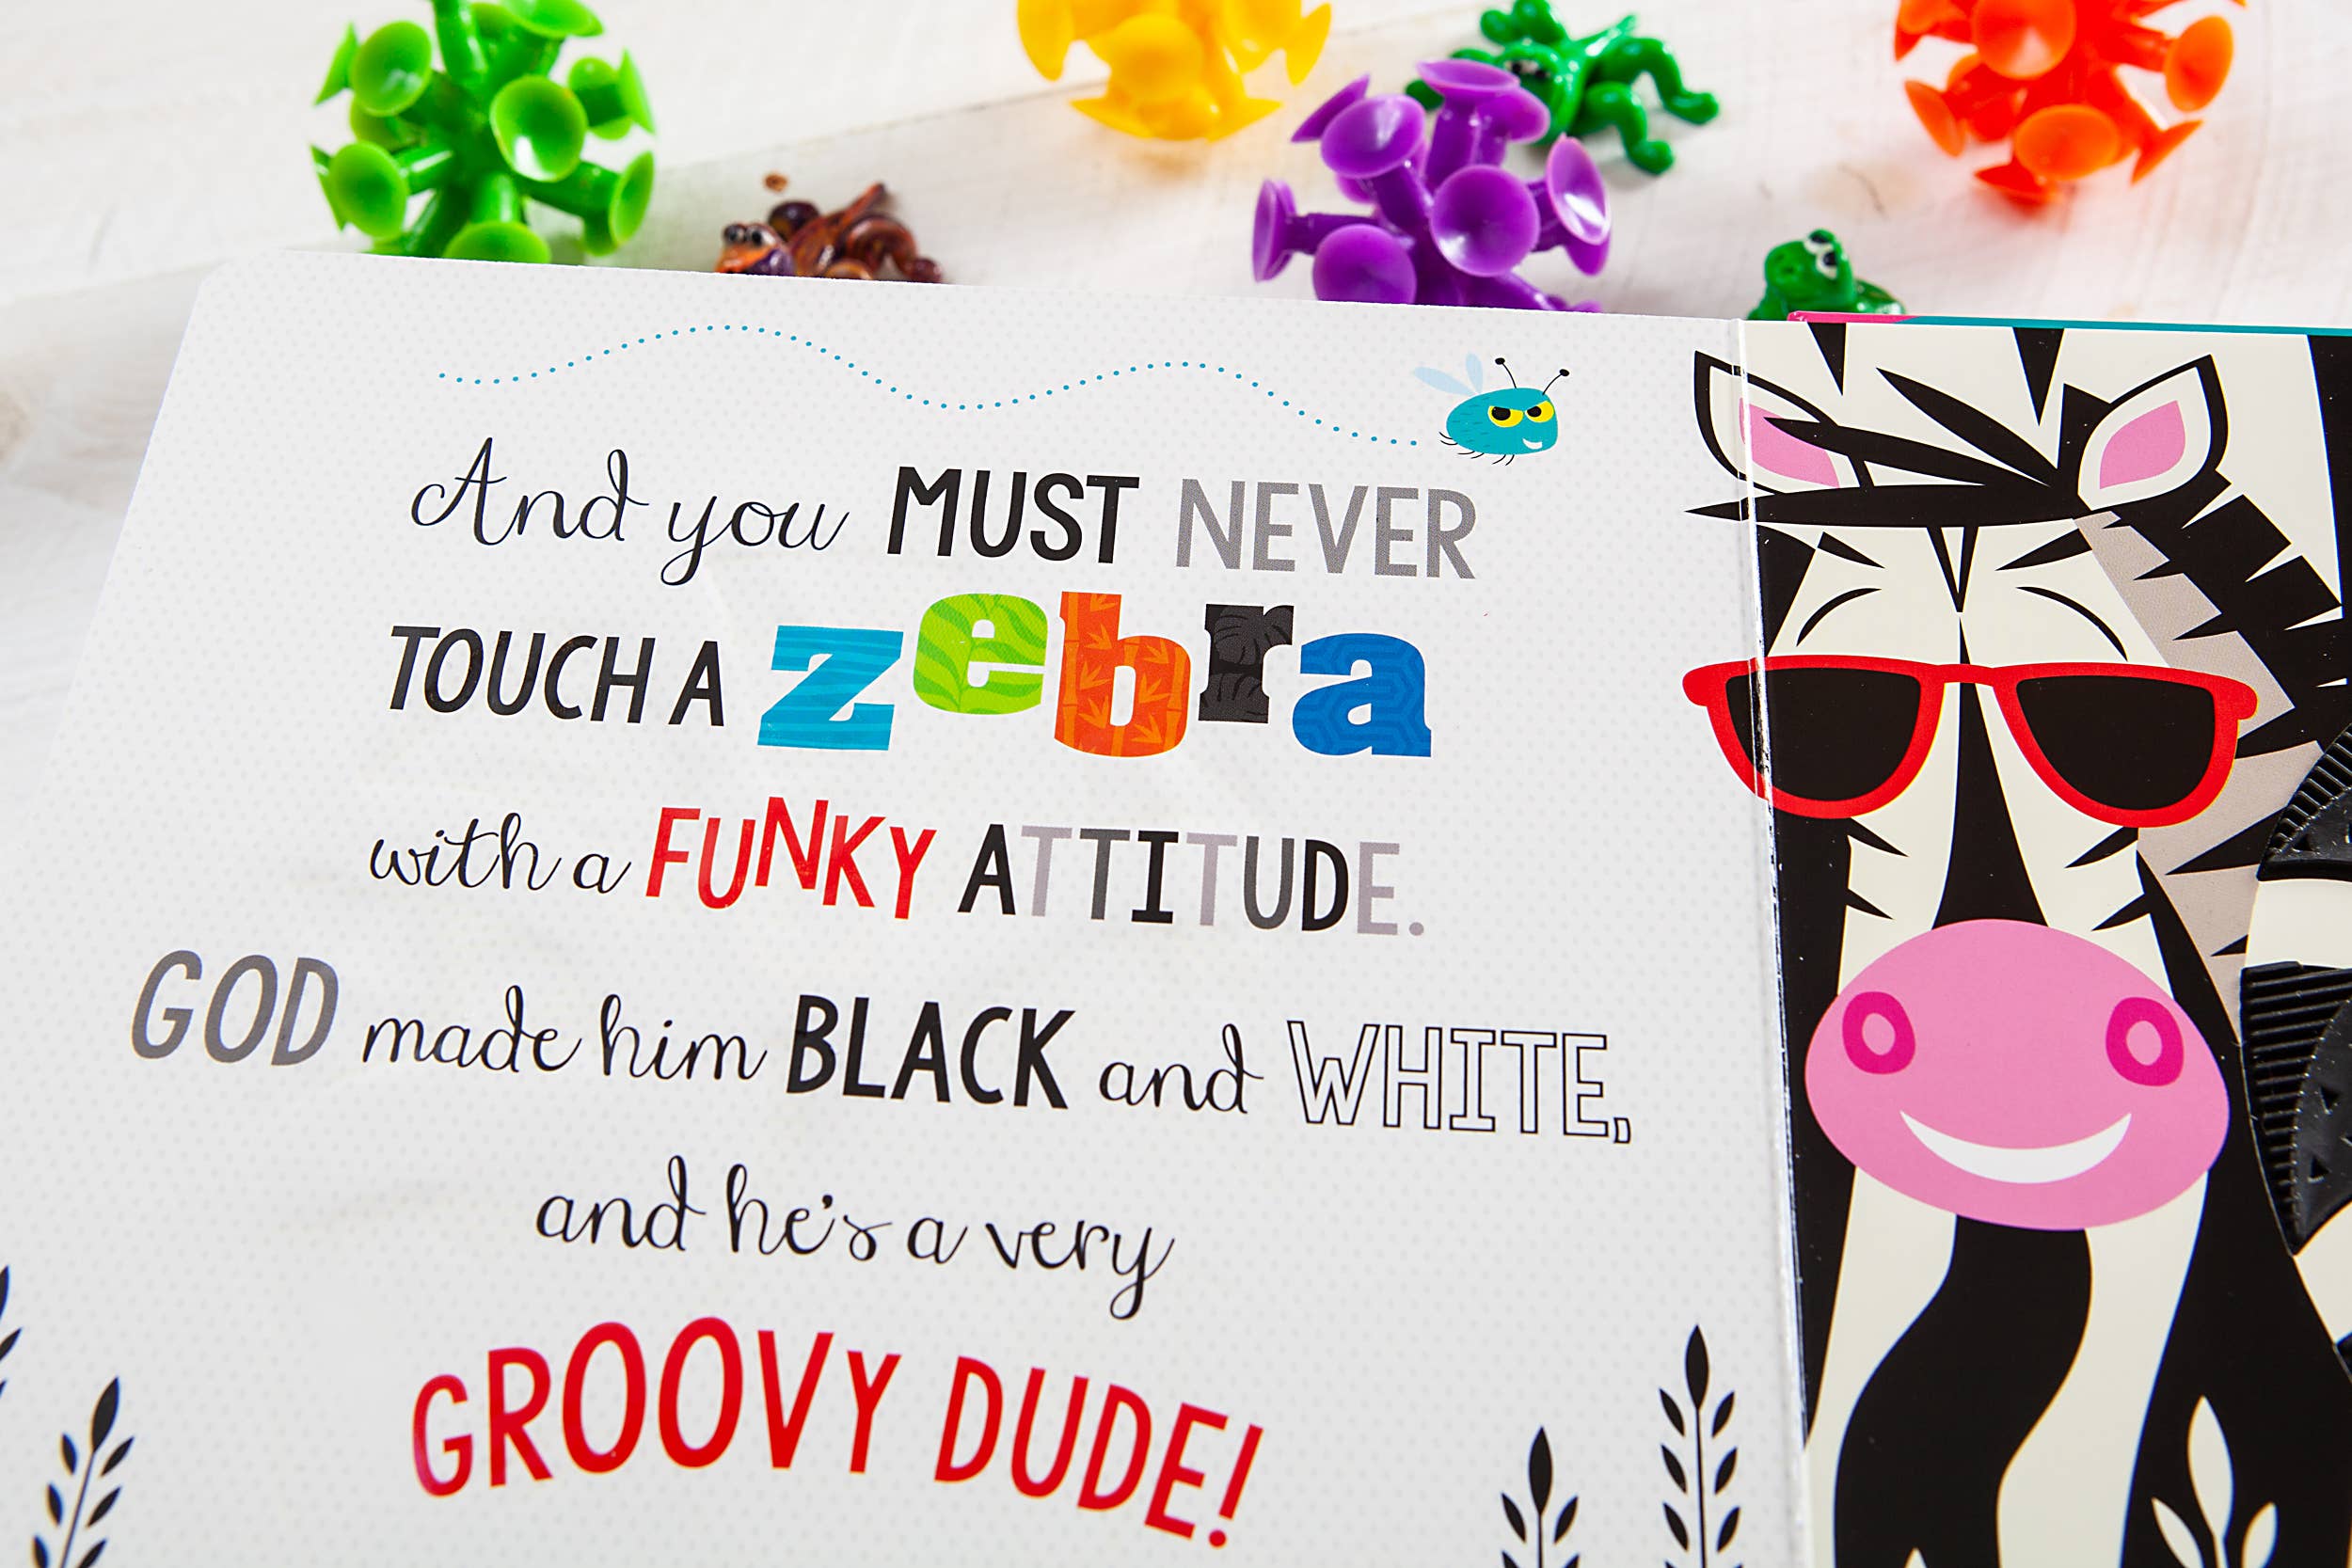 And you MUST NEVER
TOUCH A zebra
with a FUNKY ATTITUDE.
GOD made him BLACK and WHITE,
and he's a very
GROOVY DUDE!